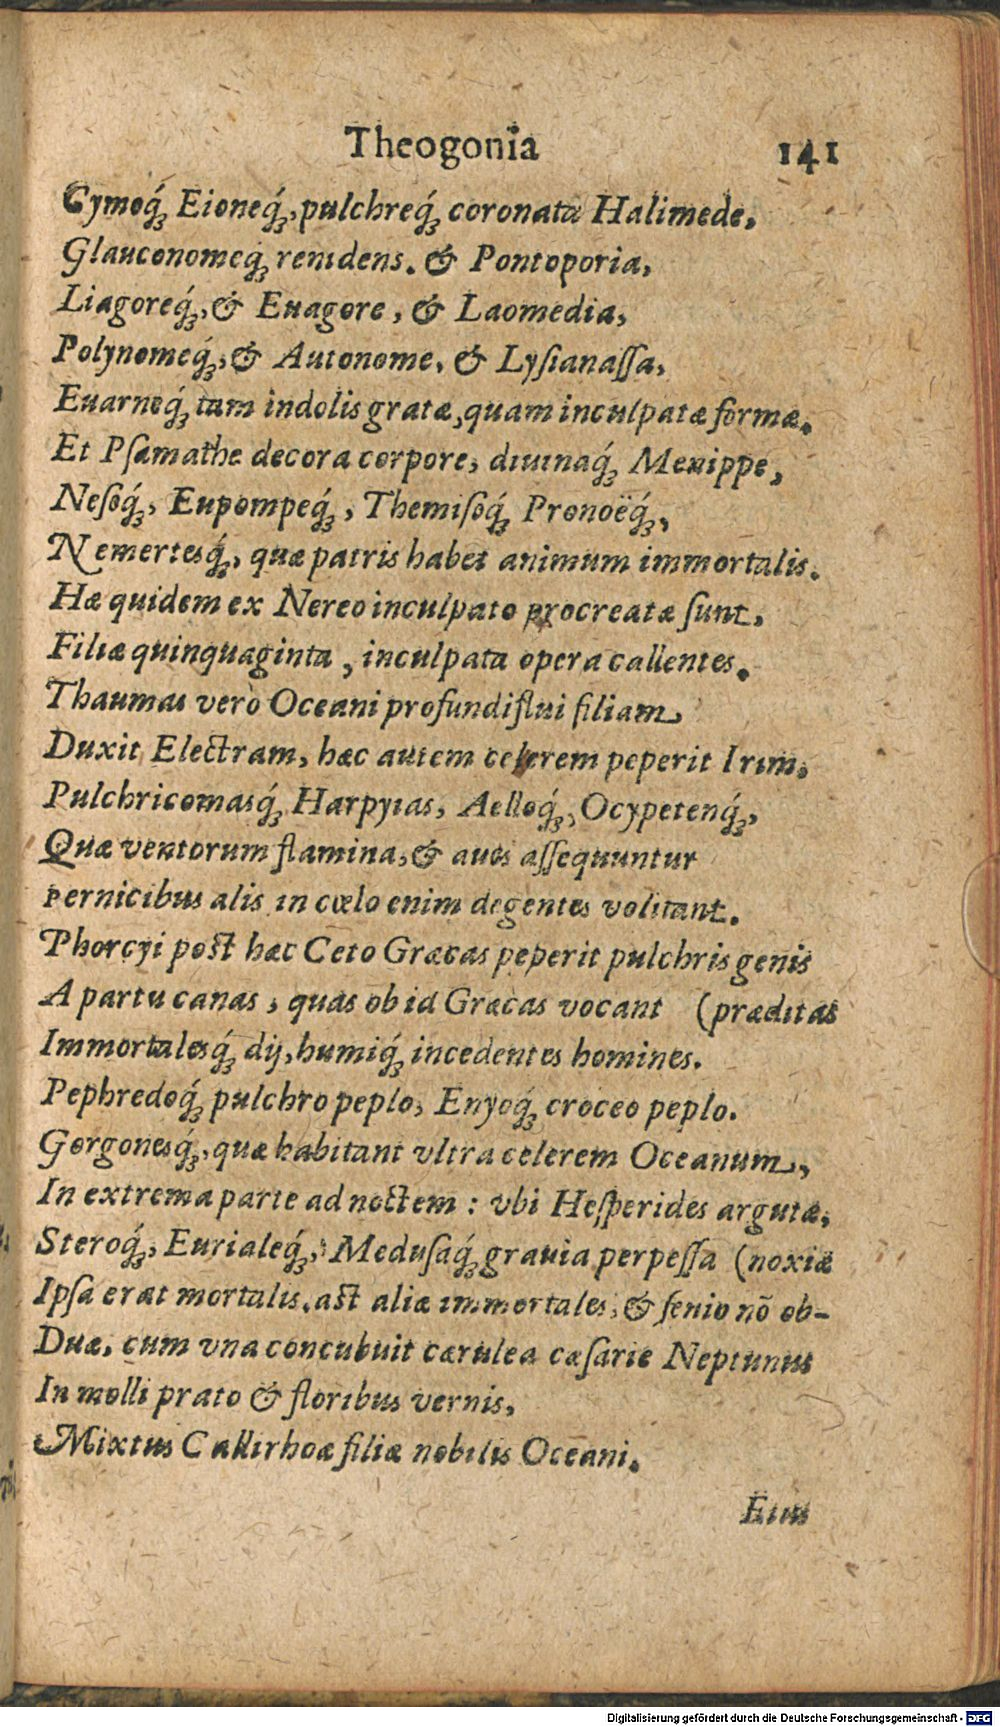 Theogonia 141
Cymoq́ꝫ Eioneq́ꝫ, pulchreq́ꝫ coronata Halimede,
Glauconomeq́ꝫ renidens. & Pontoporia,
Liagoreq́ꝫ, & Euagore, & Laomedia,
Polynomeq́ꝫ, & Autonome, & Lyſianaſſa,
Euarneq́ꝫ tam indolis gratæ, quam inculpatæ formæ.
Et Pſamathe decora corpore, diuinaq́ꝫ Menippe,
Neſoq́ꝫ, Eupompeq́ꝫ, Themiſoq́ꝫ Pronoëq́ꝫ,
Nemertesq́ꝫ, quæ patris habet animum immortalis.
Hæ quidem ex Nereo inculpato procreatæ ſunt,
Filiæ quinquaginta, inculpata opera callentes.
Thaumas verò Oceani profundiflui filiam
Duxit Electram, hæc autem celerem peperit Irim,
Pulchricomasq́ꝫ Harpyias, Aelloq́ꝫ, Ocypetenq́ꝫ,
Quæ ventorum flamina, & aues aſſequuntur
Pernicibus alis in cœlo enim degentes volitant.
Phorcyi poſt hæc Ceto Græcas peperit pulchris genis
A partu canas, quas ob id Græcas vocant (præditas
Immortalesq́ꝫ dij, humiq́ꝫ incedentes homines.
Pephredoq́ꝫ pulchro peplo, Enyoq́ꝫ croceo peplo.
Gorgonesq́ꝫ, quæ habitant vltra celerem Oceanum,
In extrema parte ad noctem: vbi Heſperides argutæ,
Steroq́ꝫ, Eurialeq́ꝫ, Meduſaq́ꝫ grauia perpeſſa (noxiæ
Ipſa erat mortalis, aſt aliæ immortales, & ſenio nō ob-
Duæ, cum vna concubuit cærulea cæſarie Neptunus
In molli prato & floribus vernis,
Mixtus Callirhoæ filiæ nobilis Oceani.
Eius
Digitalisierung gefördert durch die Deutsche Forschungsgemeinschaft - DFG